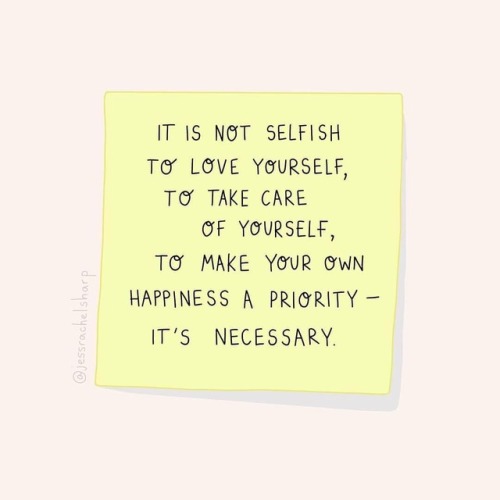 IT IS NOT SELFISH
TO LOVE YOURSELF,
TO TAKE CARE
OF YOURSELF,
TO MAKE YOUR OWN
HAPPINESS A PRIORITY –
IT'S NECESSARY.
@jessrachelsharp